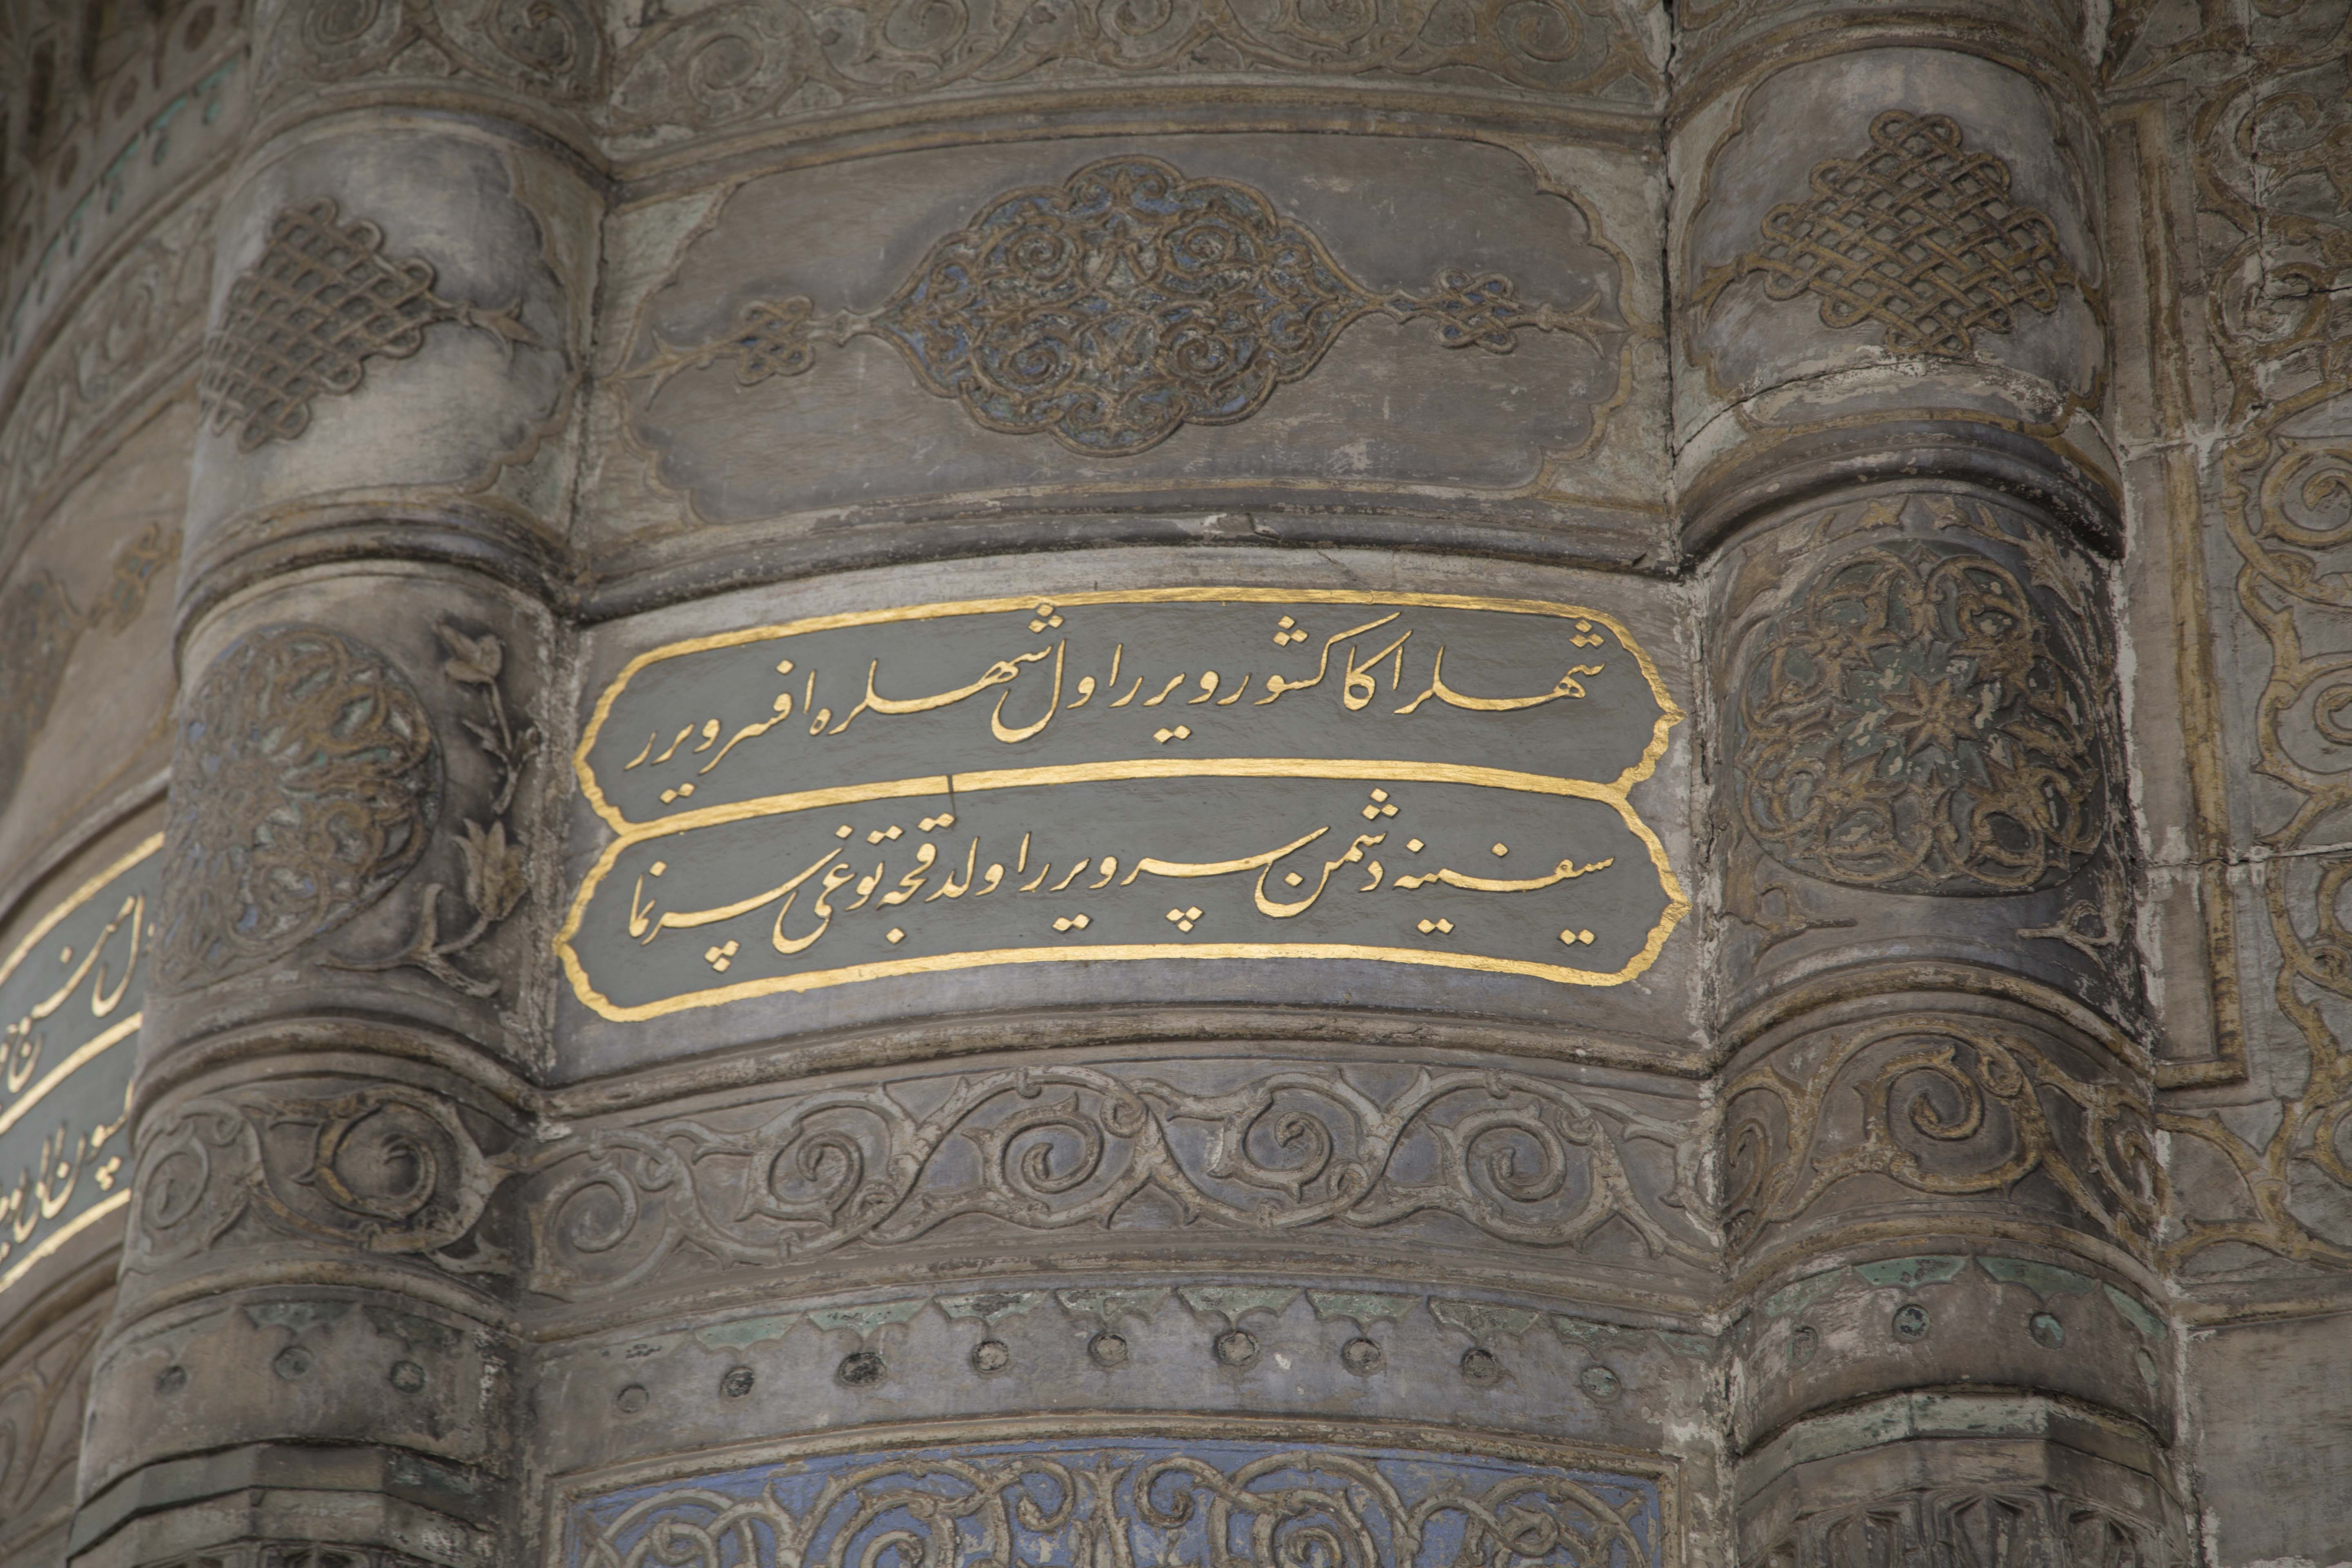 شهلر اکا کشور ویرر اول شهلره افسر ویرر
سیفینه دشمن سر ویرر اولدقجه توغی سرنما